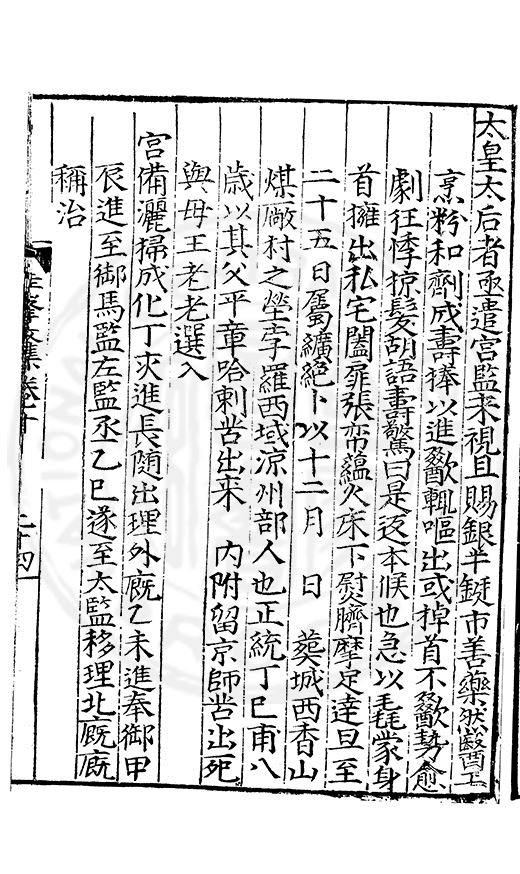 太皇太后者亟遣宮監来視且賜銀半鋌市善藥然醫工
烹粉和劑戍壽捧以進歠輒嘔出或掉首不歠勢愈
劇狂悸掠髮胡語壽驚曰是返本候也急以毳蒙身
首擁出私宅闔扉張帟蘊火床下熨臍摩足達旦至
二十五日屬纊絶卜以十二月 日 葬城西香山
煤厰村之塋孛羅西域涼州部人也正統丁巳甫八
歲以其父平章哈剌苦出来 内附留京師苦出死
與母王老老選入
宮備灑掃成化丁亥進長随出理外廐乙未進奉御甲
辰進至御馬監左監丞乙巳遂至太監移理北廐廐
稱治
峯文集卷七十 二十四